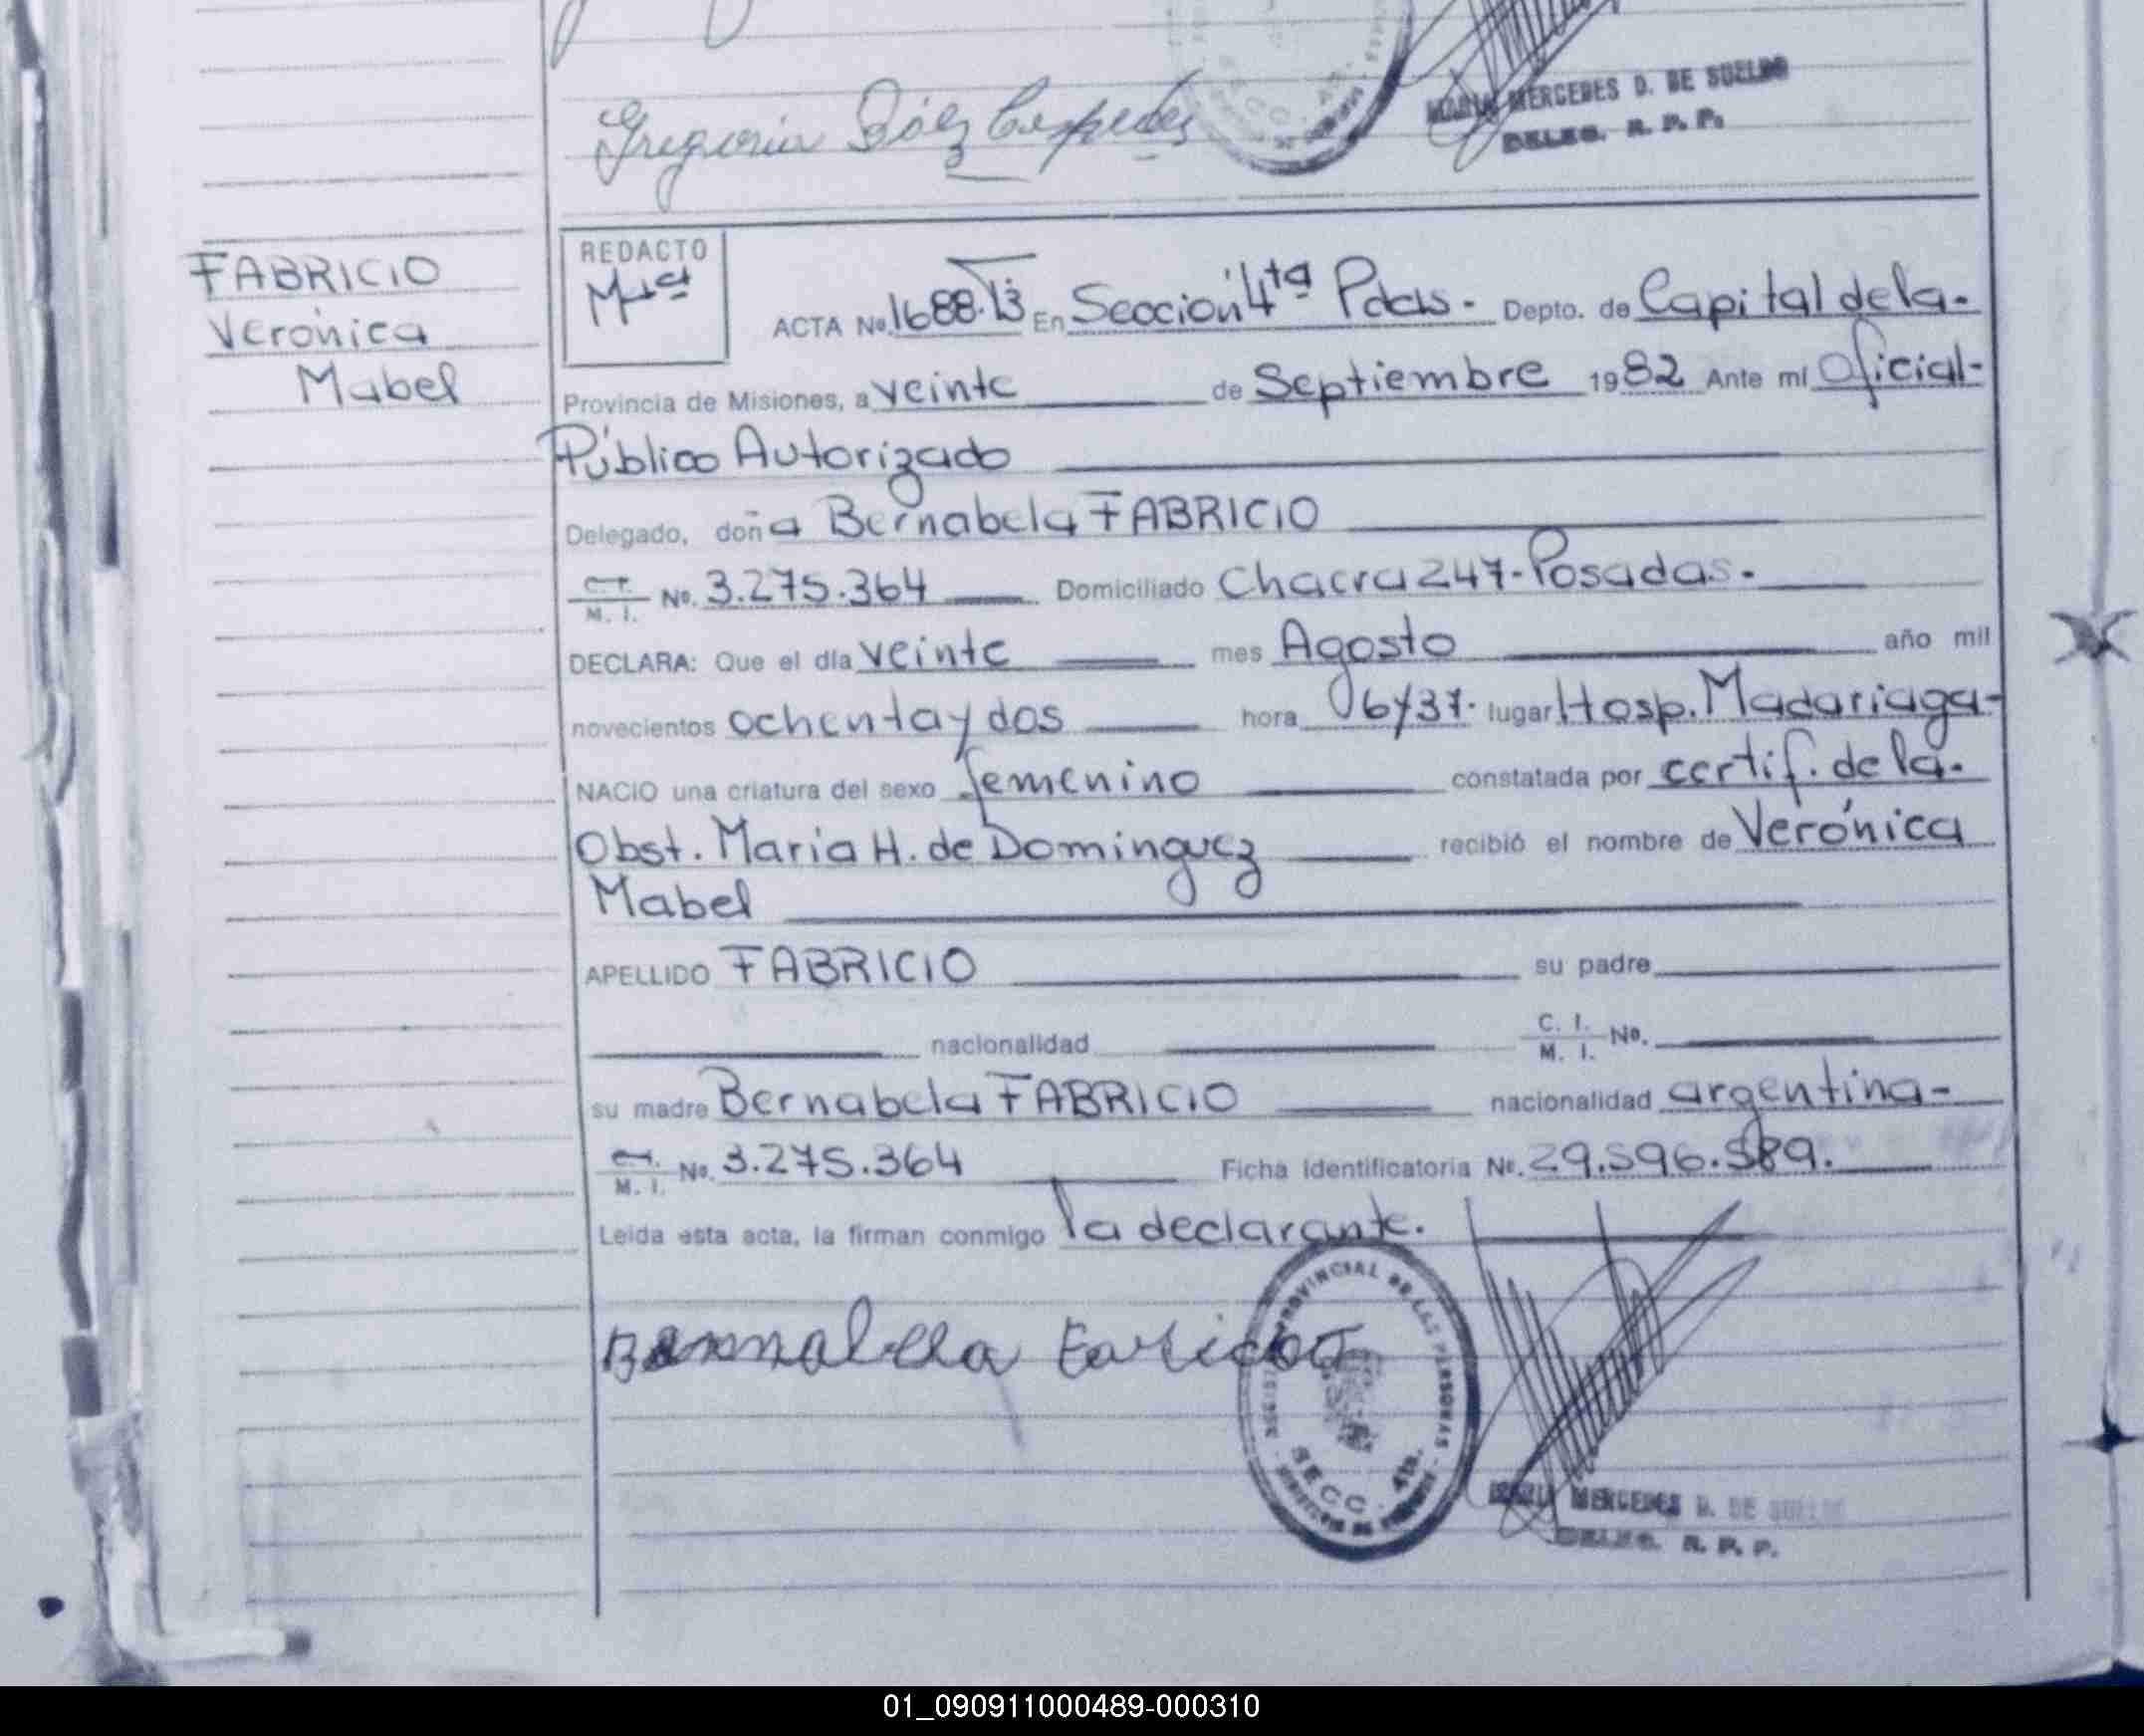 Gregoria Báez Cespedes
MARIA MERCEDES D. DE SUELDO
DELEG. R. P. P.
FABRICIO
Verónica
Mabel
REDACTO
ACTA No. 1688. T3 En Sección 4ta Pdas. Depto. de Capital de la.
Provincia de Misiones, a veinte de Septiembre 1982 Ante mi Oficial-
Público Autorizado
Delegado, doña Bernabela FABRICIO
C. I.
M. I. No. 3.275.364 Domiciliado Chacra 247-Posadas.
DECLARA: Que el día veinte mes Agosto año mil
novecientos ochenta y dos hora 06y37. lugar Hosp. Madariaga-
NACIO una criatura del sexo femenino constatada por certif. de la.
Obst. Maria H. de Dominguez recibió el nombre de Verónica
Mabel
APELLIDO FABRICIO su padre
nacionalidad C. I.
M. I. No.
su madre Bernabela FABRICIO nacionalidad argentina-
C. I.
M. I. No. 3.275.364 Ficha Identificatoria No. 29.596.589.
Leída esta acta, la firman conmigo la declarante.
PROVINCIAL DE LAS PERSONAS
SECC. 4ta.
MERCEDES D. DE SUELDO
DELEG. R. P. P.
01_090911000489-000310